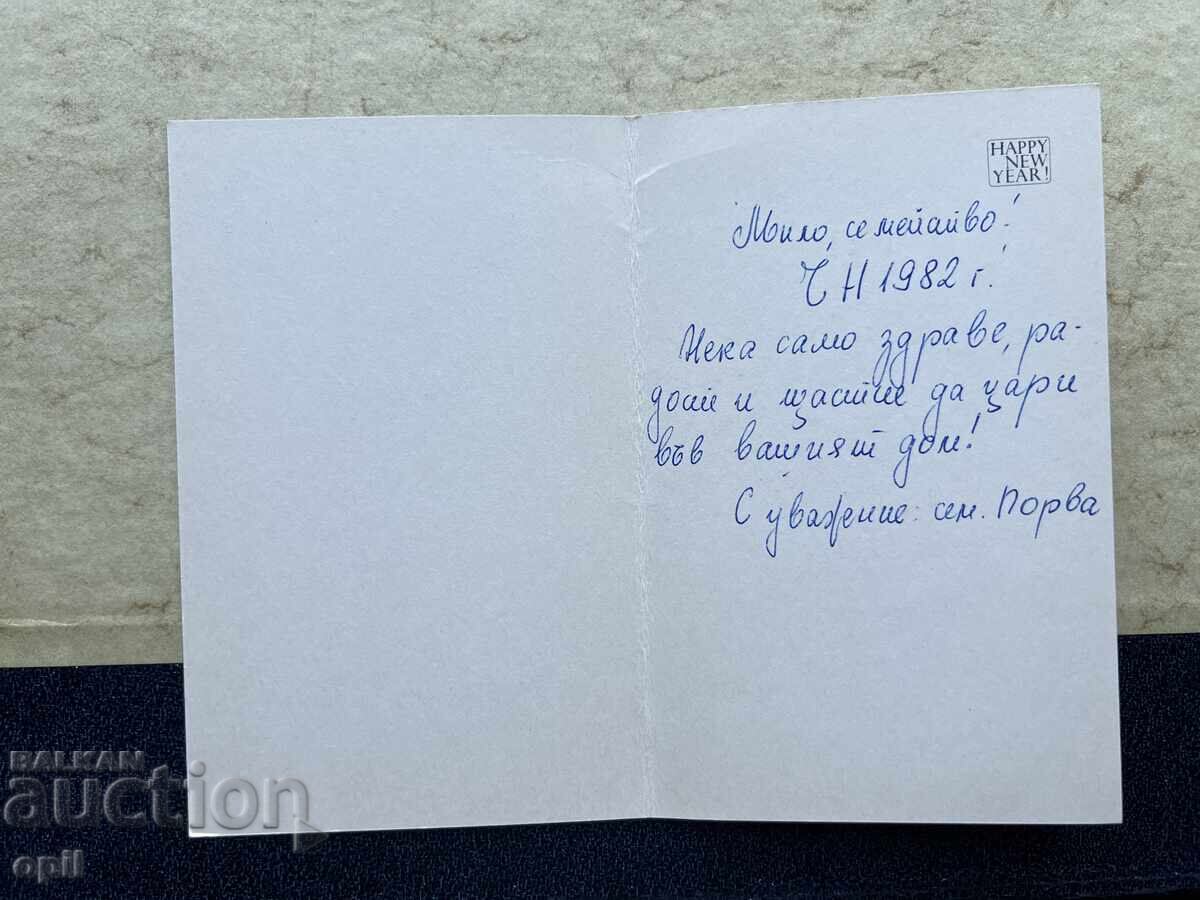 HAPPY
NEW
YEAR!
Мило, семейство!
ЧН 1982 г.
Нека само здраве, ра-
дост и щастие да цари
във вашият дом!
С уважение: сем. Порва
BALKAN
auction
opil